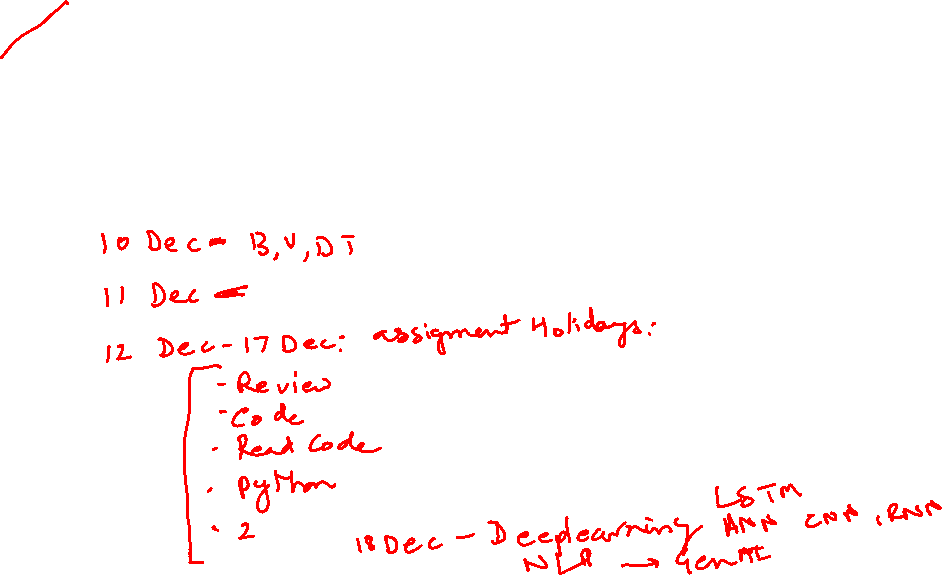 10 Dec - B, V, DT
11 Dec -
12 Dec - 17 Dec: assigment Holidays:
- Review
- Code
- Read Code
- Python
- 2
LSTM
18 Dec - Deeplearning ANN CNN, RNN
NLP → GenAI